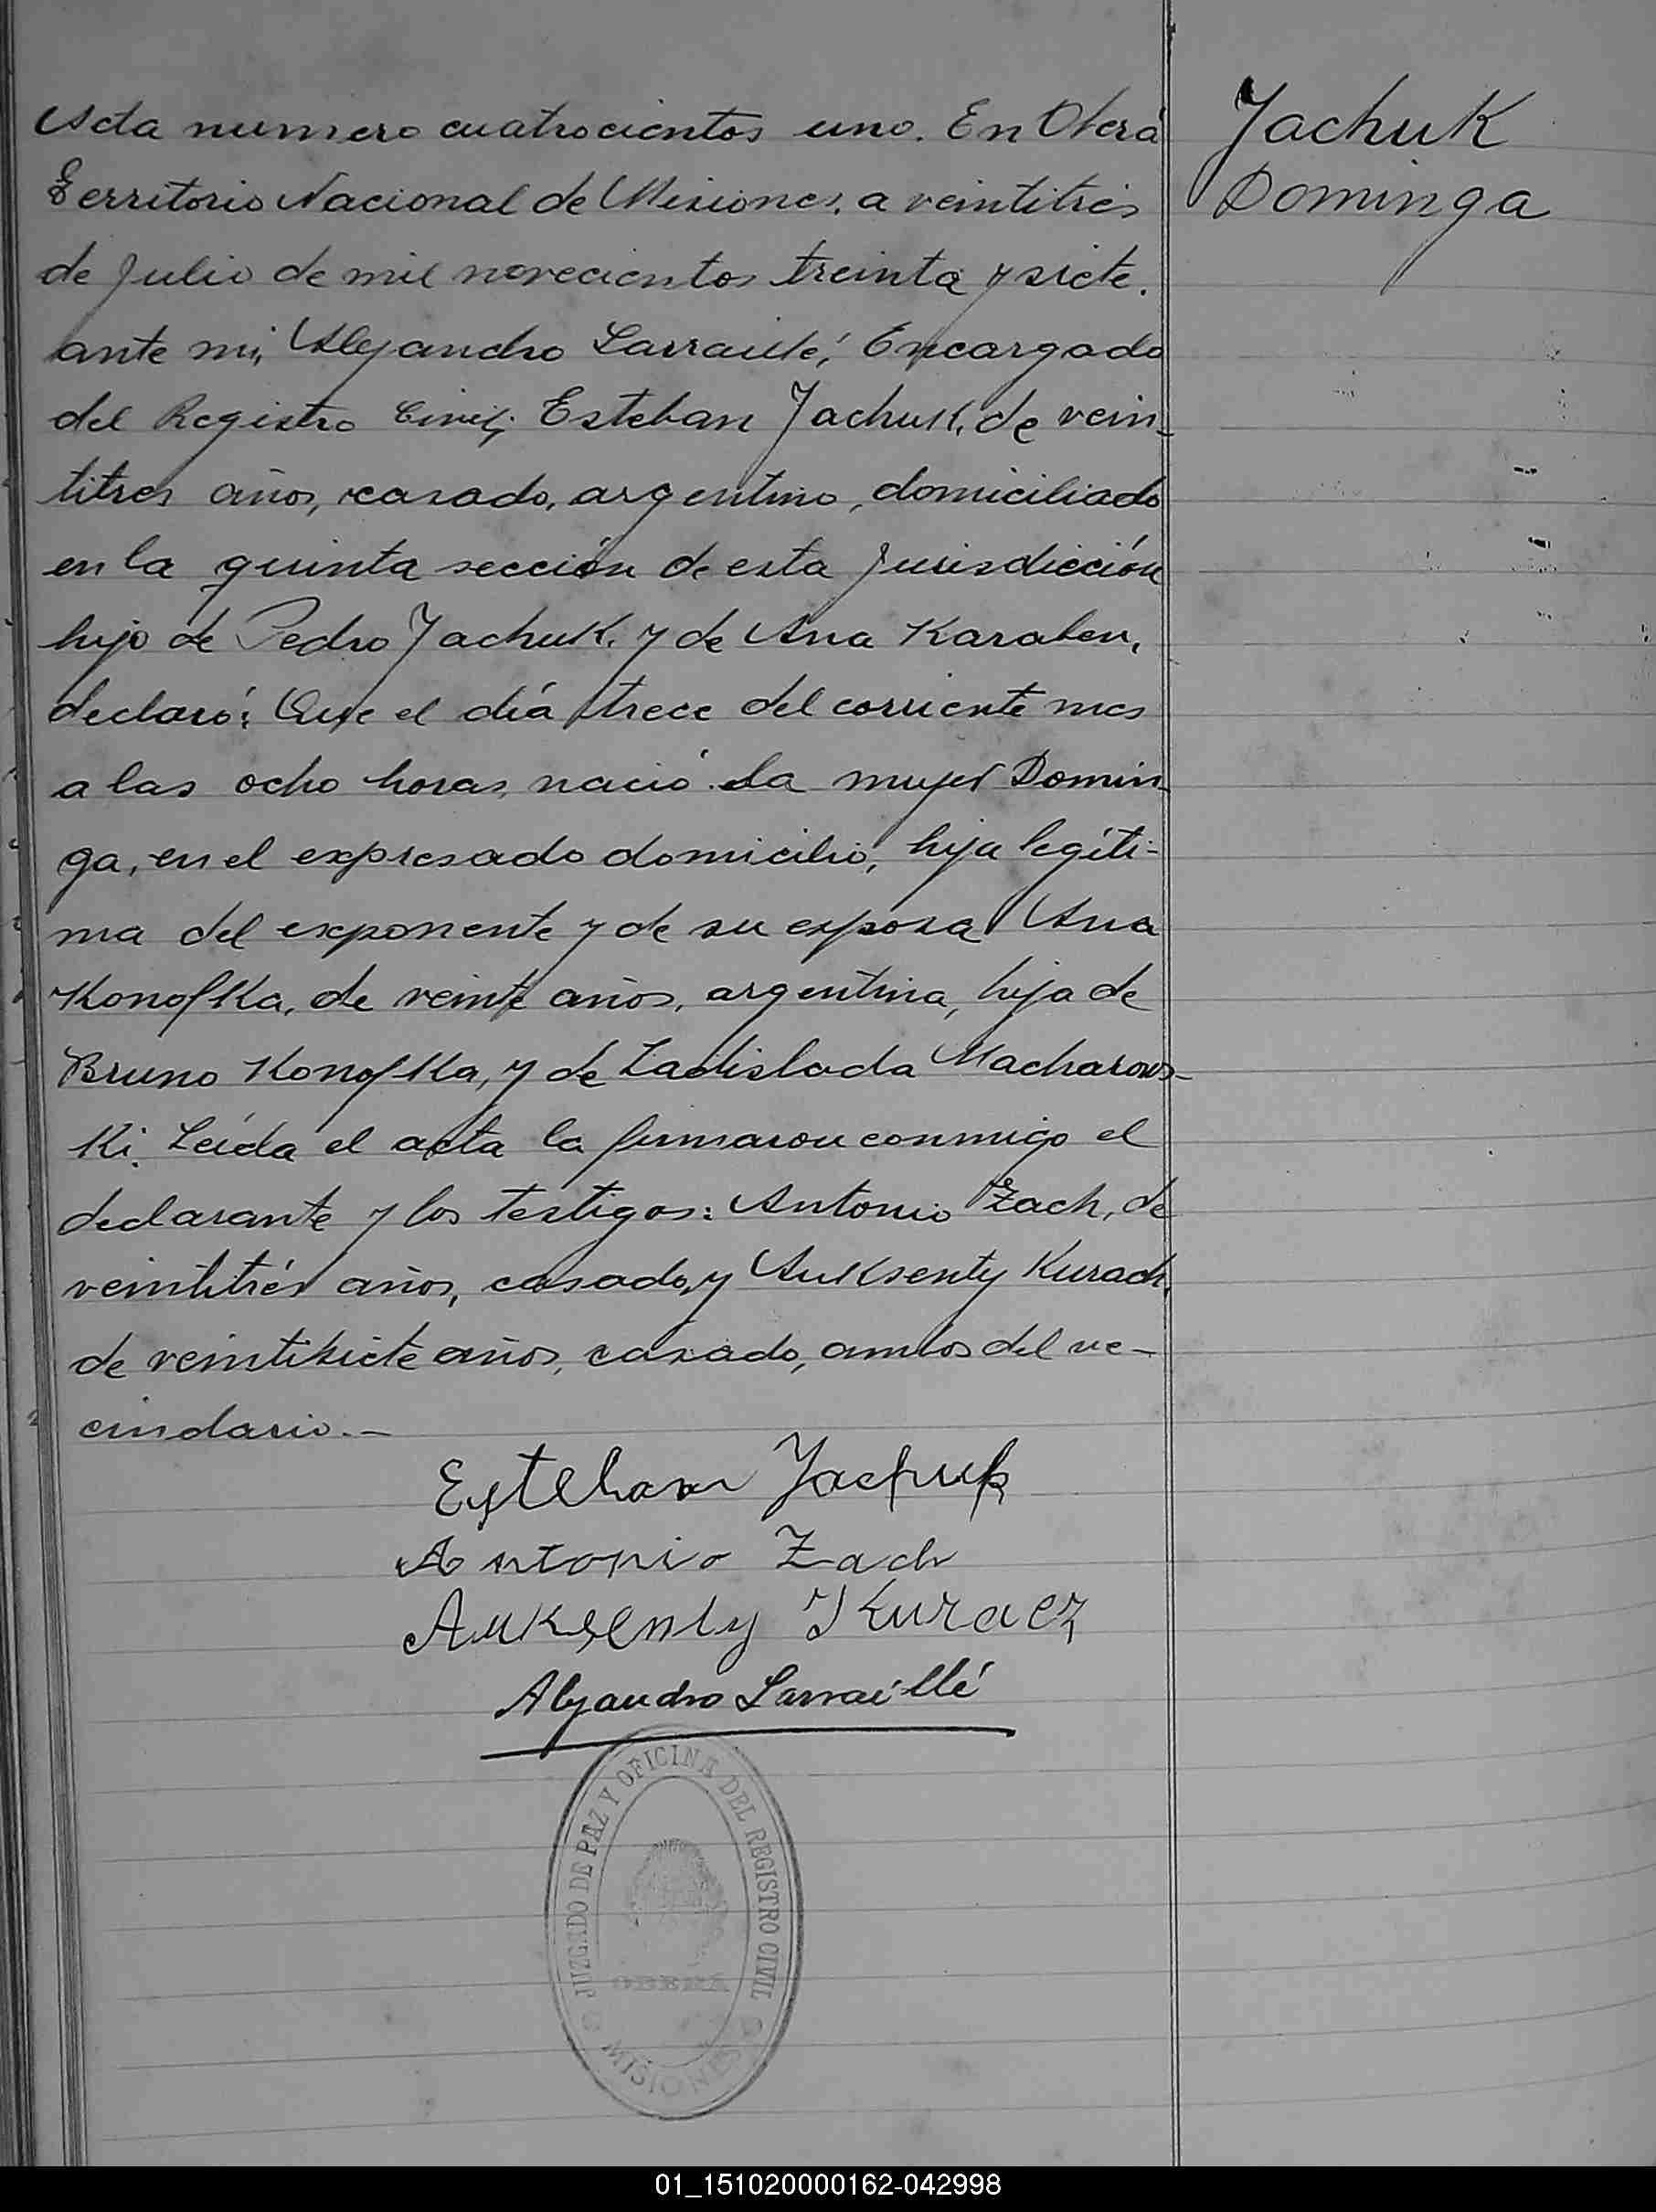 Acta numero cuatrocientos uno. En Oberá
Territorio Nacional de Misiones, a veintitrés
de Julio de mil novecientos treinta y siete.
ante mi, Alejandro Larraillé, Encargado
del Registro Civil, Esteban Jachuk, de vein-
titres años, casado, argentino, domiciliado
en la quinta sección de esta Jurisdicción
hijo de Pedro Jachuk, y de Ana Karaben,
declaró: Que el día trece del corriente mes
a las ocho horas, nació la mujer Domin-
ga, en el expresado domicilio, hija legíti-
ma del exponente y de su esposa Ana
Konofka, de veinte años, argentina, hija de
Bruno Konofka, y de Ladislada Macharows-
ki. Leída el acta la firmaron conmigo el
declarante y los testigos: Antonio Zach, de
veintitrés años, casado, y Auksenty Kurach,
de veintisiete años, casado, ambos del ve-
cindario.-
Jachuk
Dominga
Esteban Jachuk
Antonio Zach
Auksenty Kuracz
Alejandro Larraillé
JUZGADO DE PAZ Y OFICINA DEL REGISTRO CIVIL
OBERÁ
MISIONES
01_151020000162-042998